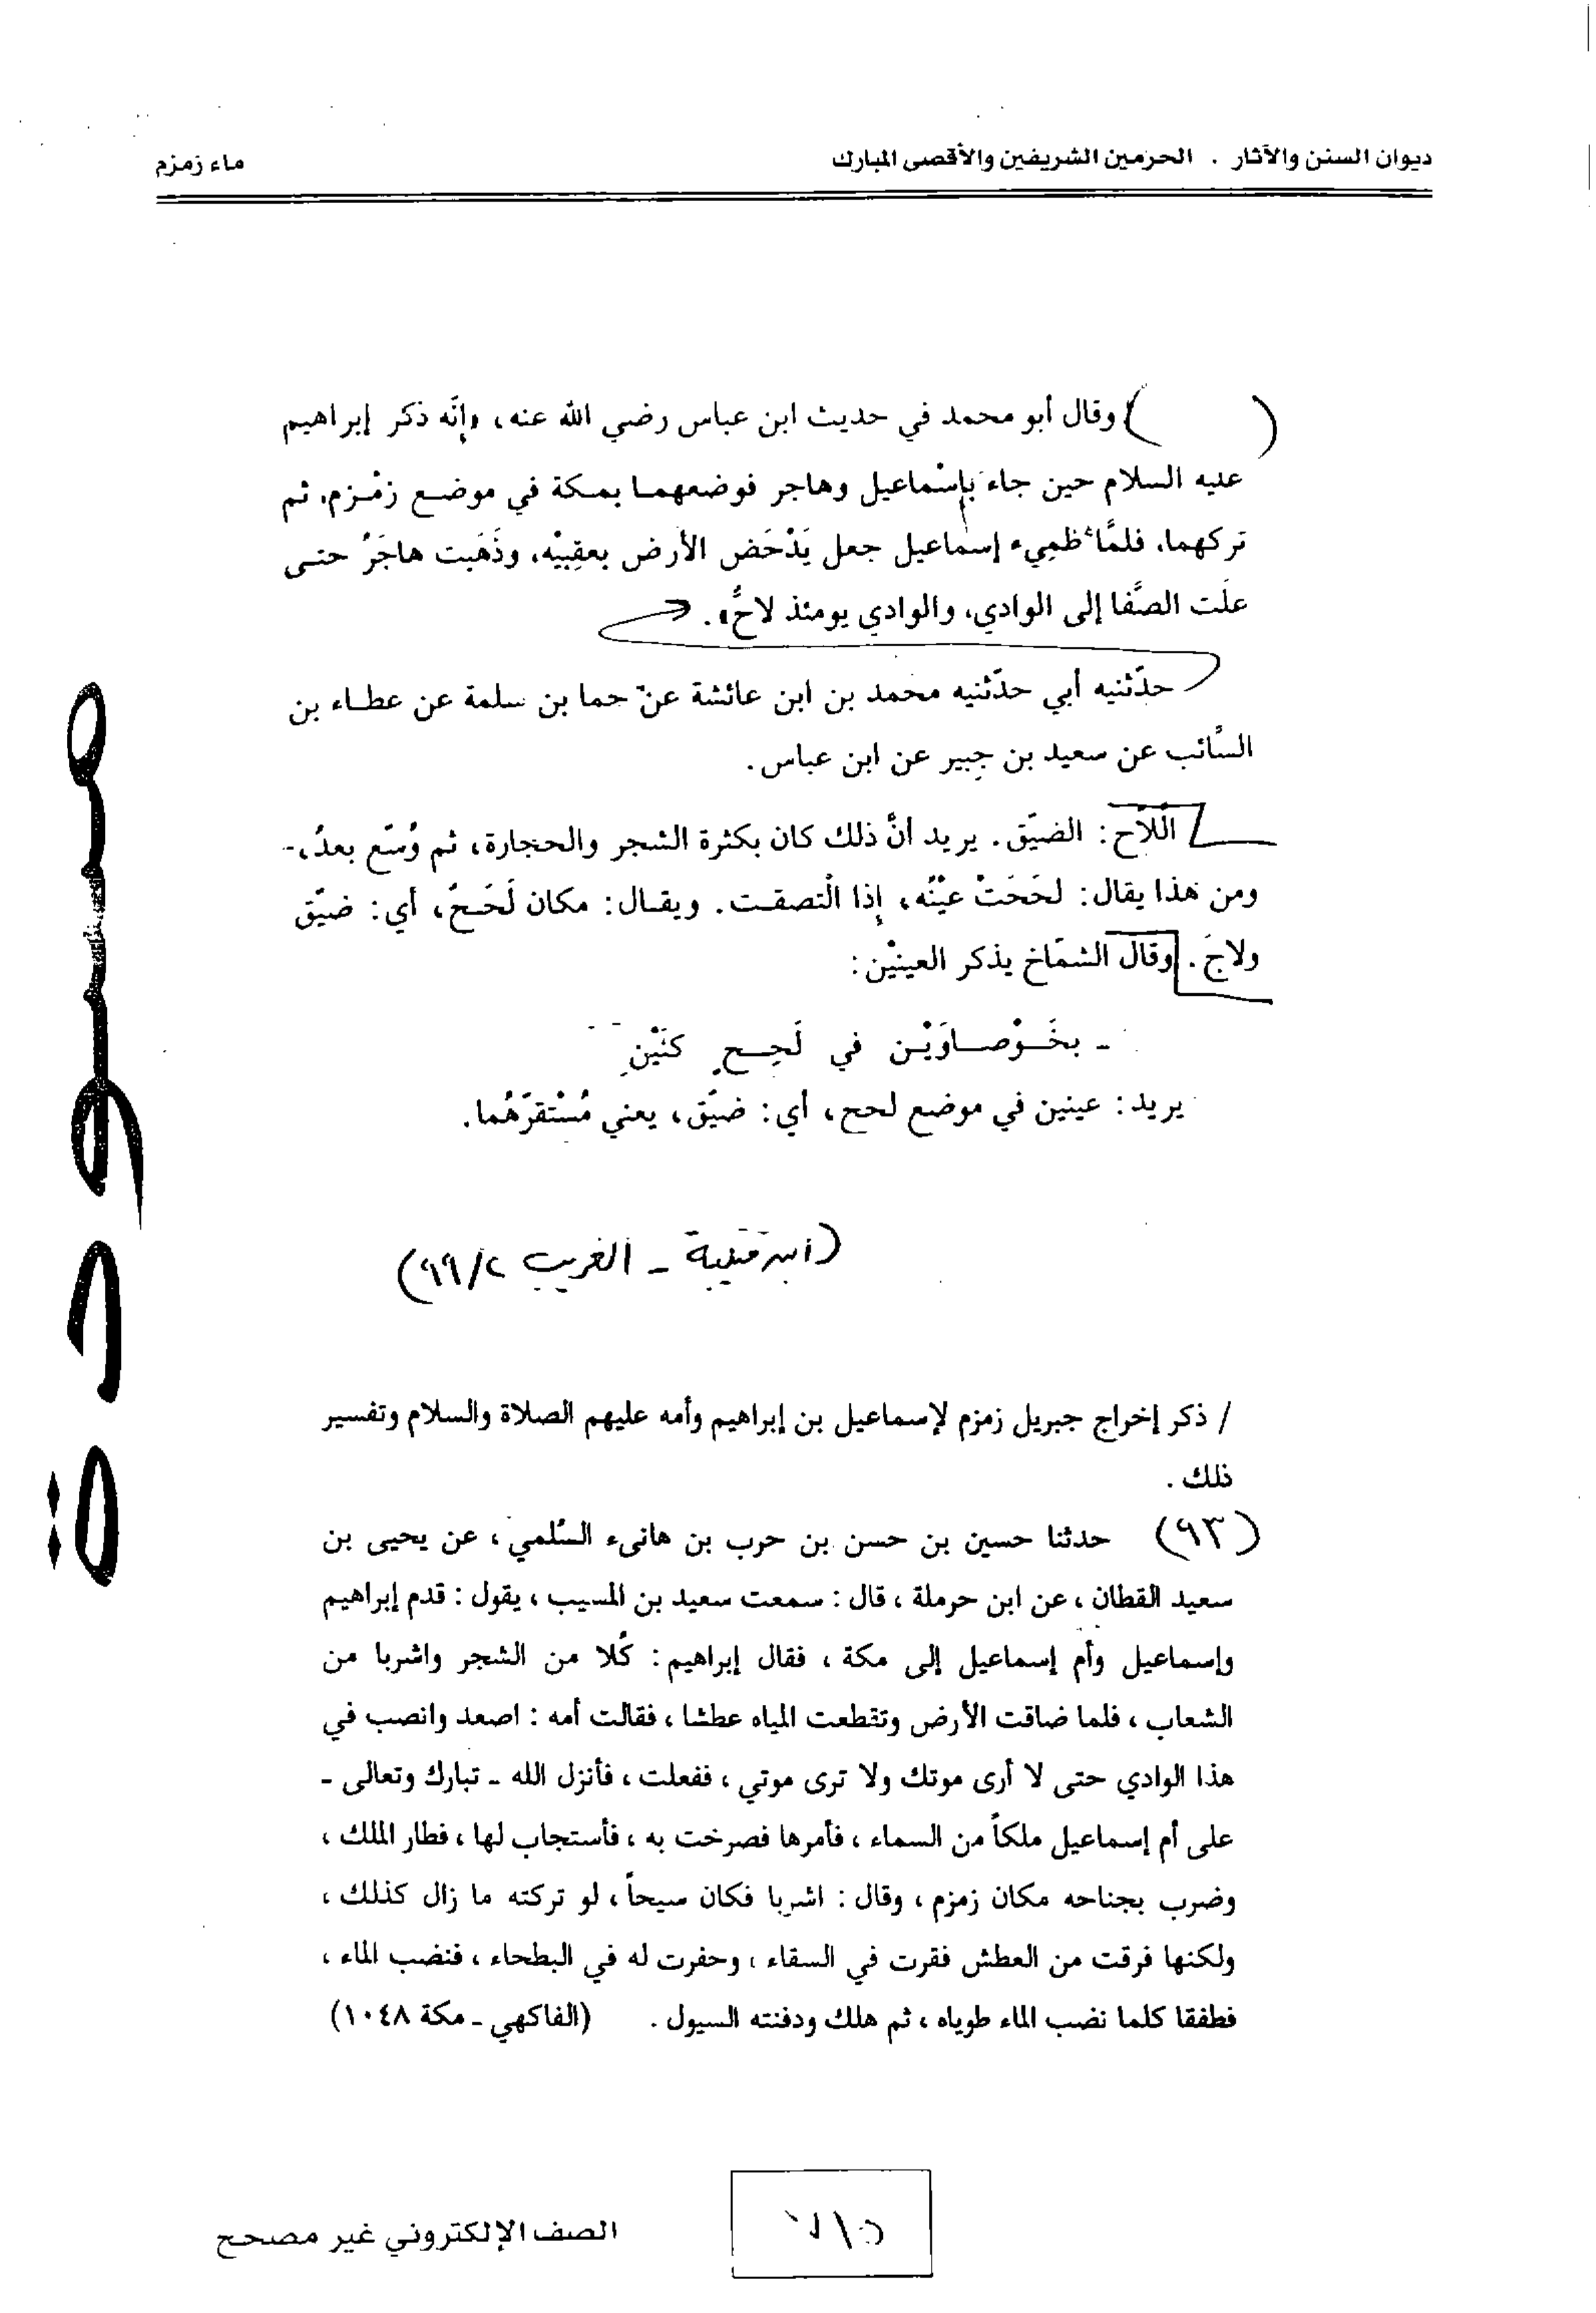 ديوان السنن والآثار . الحرمين الشريفين والأقصى المبارك
ماء زمزم
( ) وقال أبو محمد في حديث ابن عباس رضي الله عنه، «إنّه ذكر إبراهيم
عليه السلام حين جاء بإسْماعيل وهاجر فوضعهما بمكة في موضع زمْزم. ثم
تركهما. فلمَّا ظمِيء إسماعيل جعل يَدْحَض الأرض بعقِبيْه، وذَهَبت هاجَرُ حتى
علَت الصَّفا إلى الوادي، والوادي يومئذ لاحٌّ».
حدّثنيه أبي حدّثنيه محمد بن ابن عائشة عن حما بن سلمة عن عطاء بن
السَّائب عن سعيد بن جبير عن ابن عباس.
اللَّاح: الضيّق. يريد أنَّ ذلك كان بكثرة الشجر والحجارة، ثم وُسّع بعدُ،
ومن هذا يقال: لحَحَتْ عيْنُه، إذا الْتصقت. ويقال: مكان لَحَحّ، أي: ضيّق
ولاحّ. وقال الشمّاخ يذكر العينيْن:
ـ بخَوْصاوَيْن في لَحِحٍ كنَيْنِ
يريد: عينين في موضع لحح، أي: ضيّق، يعني مُسْتقرّهُما.
(ابن قتيبة ـ الغريب ٢/٩٩)
/ ذكر إخراج جبريل زمزم لإسماعيل بن إبراهيم وأمه عليهم الصلاة والسلام وتفسير
ذلك .
(٩٣) حدثنا حسين بن حسن بن حرب بن هانىء السُلمي ، عن يحيى بن
سعيد القطان ، عن ابن حرملة ، قال : سمعت سعيد بن المسيب ، يقول : قدم إبراهيم
وإسماعيل وأم إسماعيل إلى مكة ، فقال إبراهيم : كُلا من الشجر واشربا من
الشعاب ، فلما ضاقت الأرض وتقطعت المياه عطشا ، فقالت أمه : اصعد وانصب في
هذا الوادي حتى لا أرى موتك ولا ترى موتي ، ففعلت ، فأنزل الله ـ تبارك وتعالى ـ
على أم إسماعيل ملكاً من السماء ، فأمرها فصرخت به ، فأستجاب لها ، فطار الملك ،
وضرب بجناحه مكان زمزم ، وقال : اشربا فكان سيحاً ، لو تركته ما زال كذلك ،
ولكنها فرقت من العطش فقرت في السقاء ، وحفرت له في البطحاء ، فنضب الماء ،
فطفقا كلما نضب الماء طوياه ، ثم هلك ودفنته السيول . (الفاكهي ـ مكة ١٠٤٨)
مسودة
الصف الإلكتروني غير مصحح